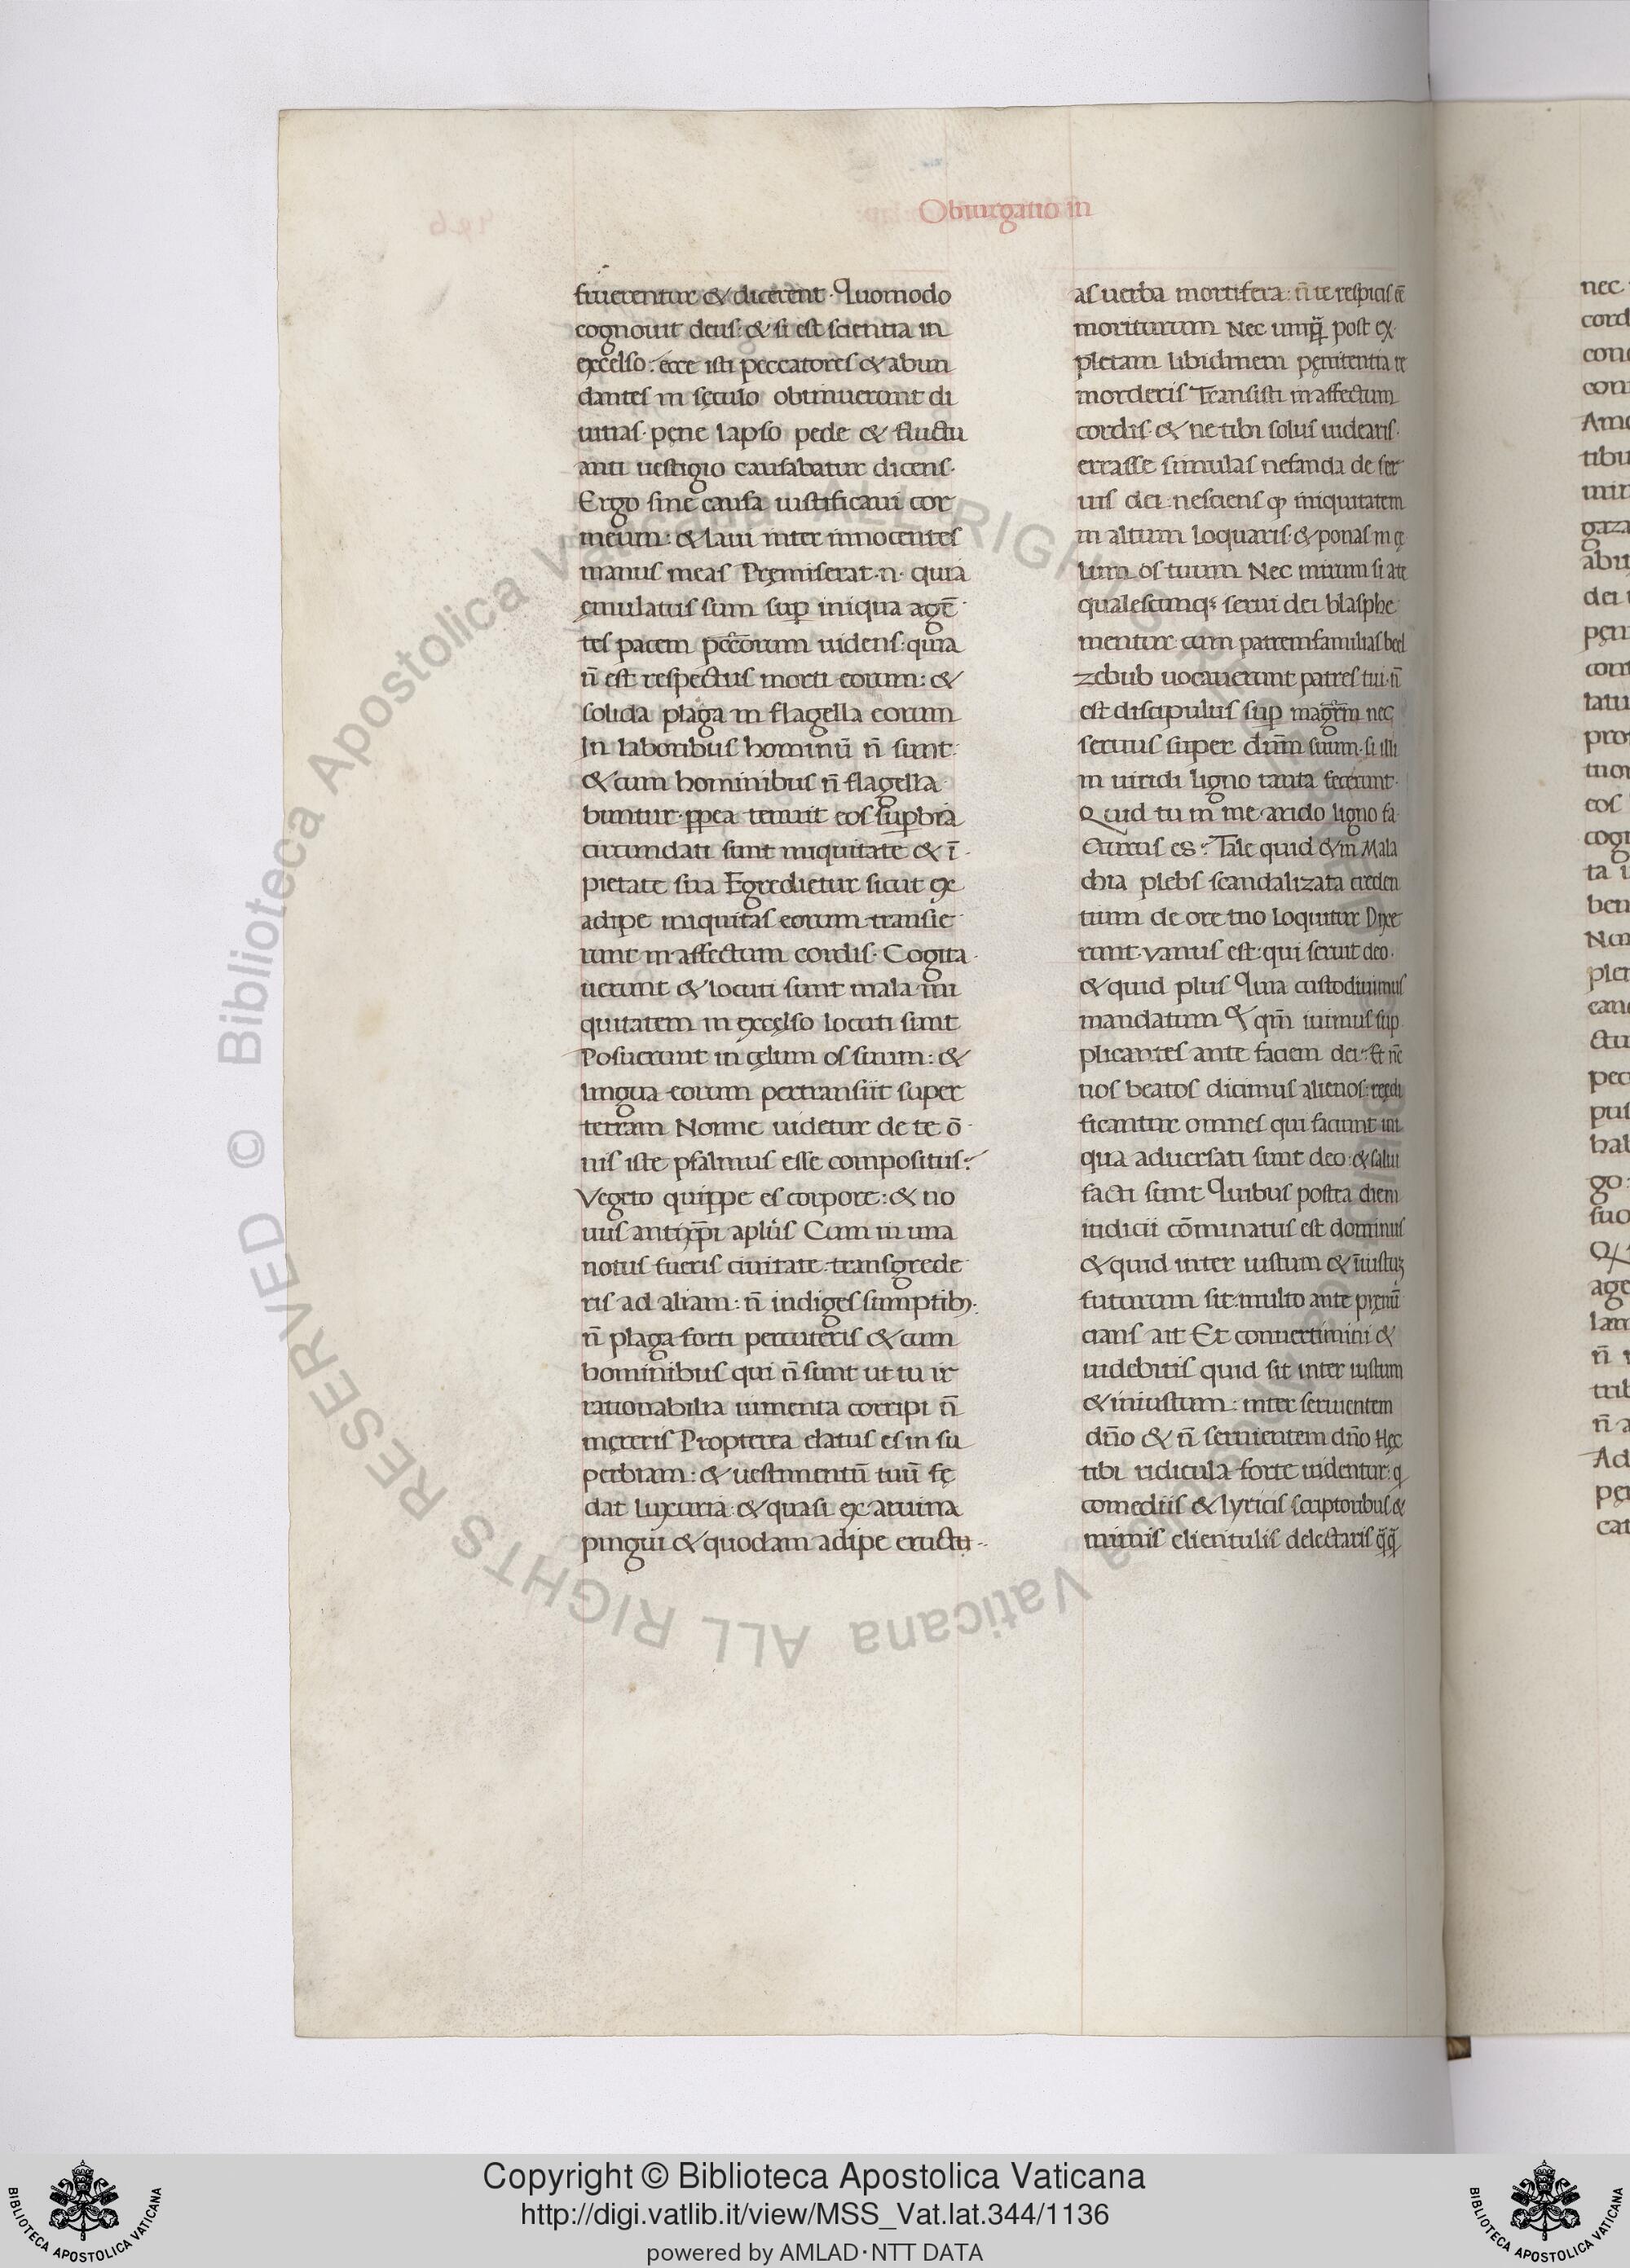 Obiurgatio in
fruerentur & dicerent· Quomodo
cognouit deus: & si est scientia in
excelso: ecce isti peccatores & abun
dantes in sęculo obtinuerunt di
uitias· pęne lapso pede & fluctu
anti uestigio causabatur dicens·
Ergo sine causa iustificaui cor
meum: & laui inter innocentes
manus meas Pręmiserat·n· quia
ęmulatus sum suꝑ iniqua agē
tes pacem pccōrum uidens: quia
n̄ est respectus morti eorum: &
solida plaga in flagella eorum
In laboribus hominū n̄ sunt:
& cum hominibus n̄ flagella
buntur· ꝓpea tenuit eos suꝑbia
circundati sunt iniquitate & ī
pietate sua Egredietur sicut ex
adipe iniquitas eorum transie
runt in affectum cordis· Cogita
uerunt & locuti sunt mala· ini
quitatem in excęlso locuti sunt
Posuerunt in cęlum os suum: &
lingua eorum pertransiit super
terram Nonne uidetur de te ō
nis iste psalmus esse compositus?
Vegeto quippe es corpore: & no
uus antixp̄i apl̄us Cum in una
notus fueris ciuitate· transgrede
ris ad aliam: n̄ indiges sumptibꝫ:
n̄ plaga forti percuteris & cum
hominibus qui n̄ sunt ut tu ir
rationabilia iumenta corripi n̄
męreris Propterea elatus es in su
perbiam: & uestimentū tuū fę
dat luxuria· & quasi ex aruina
pingui & quodam adipe eructu
as uerba mortifera: n̄ te respicis ēē
moriturum Nec unq̄ post ex
pletam libidinem pęnitentia re
morderis Transisti in affectum
cordis· & ne tibi solus uidearis·
errasse simulas nefanda de ser
uis dei· nesciens ꝙ iniquitatem
in altum loquaris· & ponas in cę
lum os tuum Nec mirum si a te
qualescunqꝫ serui dei blasphe
mentur· cum patremfamilias beel
zebub uocauerunt patres tui· n̄
est discipulus suꝑ magr̄m nec
seruus super dn̄m suum· si illi
in uiridi ligno tanta fecerunt·
Quid tu in me arido ligno fa
cturus es? Tale quid & in Mala
chia plebs scandalizata creden
tium de ore tuo loquitur Dixe
runt· vanus est: qui seruit deo·
& quid plus Quia custodiuimus
mandatum & qm̄ iuimus sup
plicantes ante faciem dei? Et nc̄
nos beatos dicimus alienos: reedi
ficantur omnes qui faciunt ini
qua aduersati sunt deo: & salui
facti sunt Quibus postea diem
iudicii cōminatus est dominus
& quid inter iustum & iniustuꝫ
futurum sit· multo ante pręnū
cians ait Et conuertimini &
uidebitis quid sit inter iustum
& iniustum: inter seruientem
dn̄o & n̄ seruientem dn̄o Hęc
tibi ridicula forte uidentur: q̄
comediis & lyricis scriptoribus &
mimis clientulis delectaris q̄q̄
Copyright © Biblioteca Apostolica Vaticana
http://digi.vatlib.it/view/MSS_Vat.lat.344/1136
powered by AMLAD·NTT DATA
© Biblioteca Apostolica Vaticana ALL RIGHTS RESERVED
BIBLIOTECA APOSTOLICA VATICANA
BIBLIOTECA APOSTOLICA VATICANA